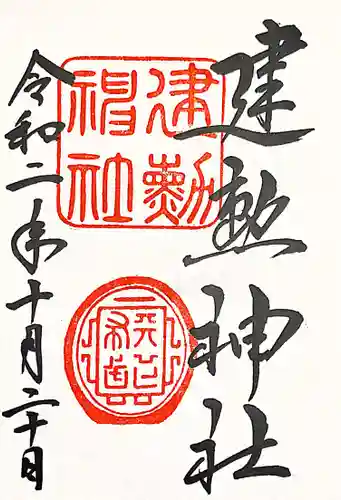 建勲神社
建勲
神社
令和二年十月二十日